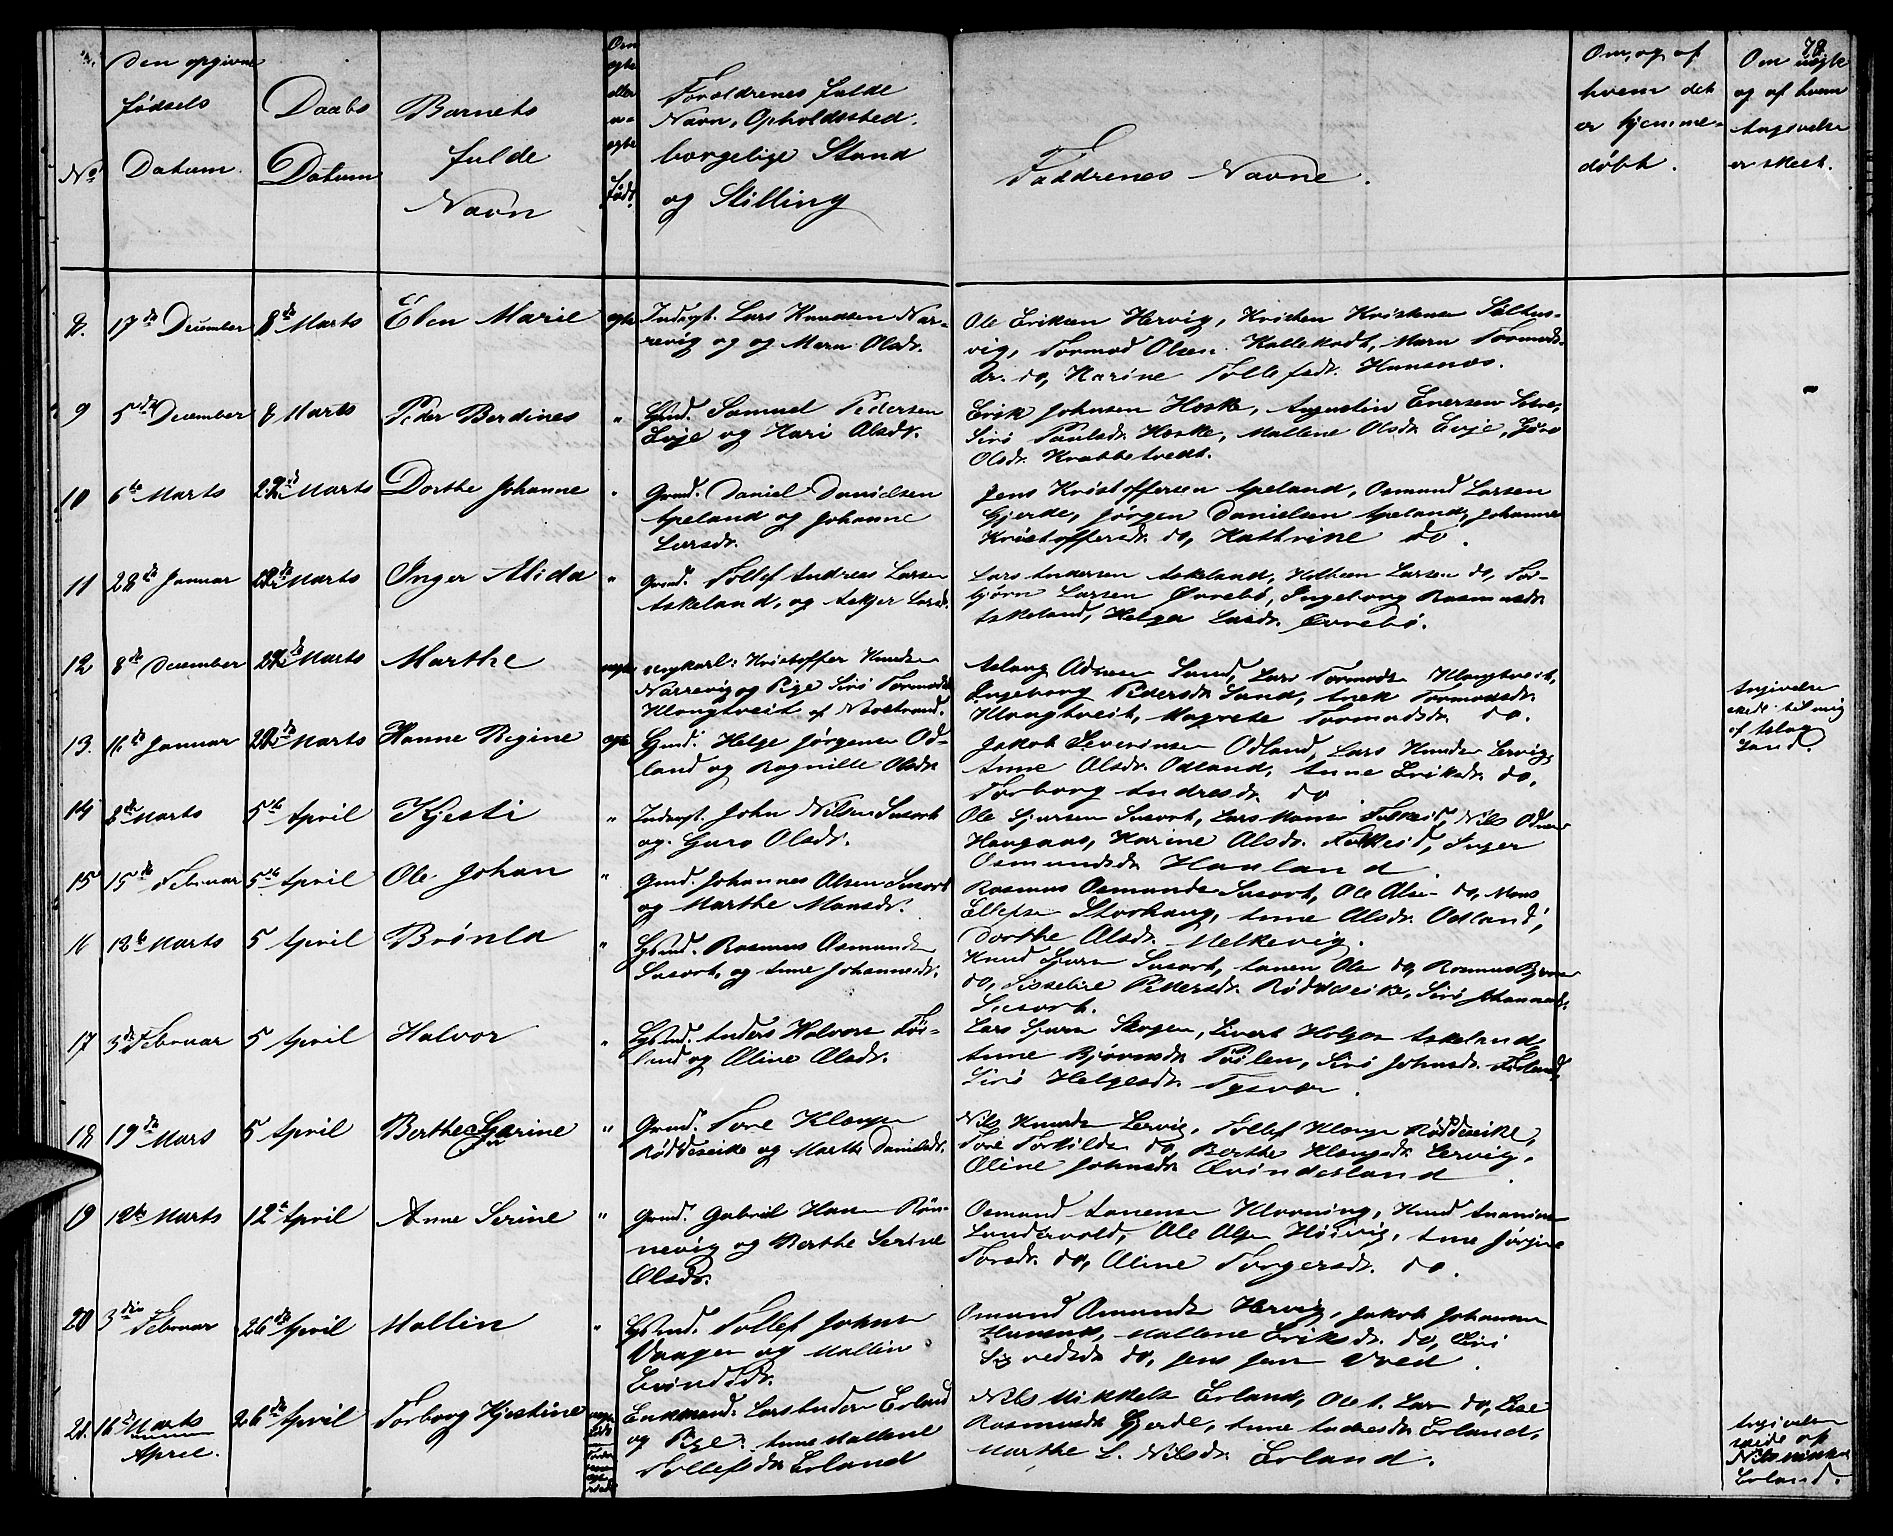 78.
No
Den opgivne
fødsels
Datum.
Daabs
Datum
Barnets
fulde
Navn
Om
egte
eller
u-
egte
Født.
Foreldrenes fulde
Navn, Opholdssted.
borgelige Stand
og Stilling
Faddrenes Navne.
Om, og af
hvem det
er hjemme-
døbt.
Om uegte
og af hvem
Angivelse
er skeet.
8. 17de December 8de Marts Elen Marie egte Inderst. Lars Knudsen Nar-
revig og og Maren Olsdr.
Ole Eriksen Hervig, Kristen Kristensen Søltus-
vig, Tormod Olsen Kallekodt, Marn Tormods-
dr. do, Karine Tollefsdr. Hunsnæs.
9 5de December 8 Marts Peder Berdines " Gbmd. Samuel Pedersen
Evje og Kari Olsdr.
Erik Johnsen Heske, Augustin Enersen
Siri Paulsdr. Heske, Mallene Olsdr. Evje,
Olsdr. Krabbetvedt.
10 6te Marts 22de Marts Dorthe Johanne " Grmd. Daniel Danielsen
Apeland og Johanne
Larsdr.
Jens Kristoffersen Apeland, Osmund Larsen
Gjerde, Jørgen Danielsen Apeland, Johanne
Kristoffersdr. do, Kathrine do.
11 28de Januar 22de Marts Inger Alida " Grmd. Tollef Andreas Larsen
Askeland, og Asker Larsd.
Lars Andersen Askeland, Larsen do, Tor-
bjørn Larsen Øvrebø, Ingeborg Rasmusdr.
Askeland, Helga Larsdr. Øvrebø.
12 8de December 22de Marts Marthe uegte Ungkarl: Kristoffer Knudsen
Narrevig og Pige Siri Tormodsd.
Klongtveit af Nostrand.
Aslaug Adnesen Sund, Lars Tormods Klongtveit,
Ingeborg Pedersdr. Sund, Anek Tormodsdr.
Klongtveit, Magrete Tormodsdr. do.
Angivelsen
skede til mig
af Aslag
Sand.
13. 11te Januar 22de Marts Hanne Regine egte Gmd. Helge Jørgensen Od-
land og Ragnille Olsdr.
Jakob Severinsen Odland, Lars Knudsen Lervig,
Anne Olsdr. Odland, Anne Eriksdr. do,
Torborg Andresdr. do
14 8de Marts 5te April Kjesti " Inderst. John Nilsen Susort
og Guro Olsdr.
Ole Gjursen Susort, Lars Hansen Folkeid, Nils
Haugaas, Karine Olsdr. Folkeid, Inger
Osmundsdr. Hauland
15 15de Februar 5te April Ole Johan " Gmd. Johannes Olsen Susort
og Marthe Monsdr.
Rasmus Osmundsen Susort, Ole Olsen do, Mons
Ellefsen Storhaug, Anne Olsdr. Odland,
Dorthe Olsdr. Melkevig.
16 12te Marts 5 April Brønla " Gbmd. Rasmus Osmundsen
Susort, og Anne Johannesdr.
Knud Gjursen Susort, Ole do, Rasmus
do, Pedersdr. Røddseike, Siri Johannesdr.
Susort.
17 3de Februar 5 April Halvor " Gbmd. Anders Halvorsen Før-
land og Oline Olsdr.
Lars Gjursen Skogen, Sivert Helgesen Askeland
Anne Bjørnsdr. Pøilen, Siri Johnsdr. Førland,
Siri Helgesdr. Tysvær.
18 19de Mars 5 April Berthe Serine " Grmd. Tore Klongsen
Røddseike og Marthe Danielsdr.
Nils Knudsen Lervig, Tollef Klongsen Røddseike,
Tore Torkilds do, Berthe Klongsdr. Lervig,
Oline Johnsdr. Øvindesland
19 12te Marts 12te April Anne Serine " Grmd. Gabriel Hansen Røn-
nevig og Berthe Serine
Olsdr.
Osmund Hovning, Knud
Sundervold, Ole Olsen Høievig, Anne Jørgine
Torsdr. do, Oline Torgersdr. do.
20 3die Februar 26de April Mallin " Gbmd. Tollef Johnsen
Vaagen og Mallin
Eivindsdr.
Osmund Osmundsen Hervig, Jakob Johannesen
Mallene Eriksdr. do, Siri
Sigvedsdr. do, Jens Jensen
21. 16de Marts
April. 26de April Torborg Kjestine Enkemand. Lars Andersen Erland
og Pige: Anne Mallene
Tollefsdr. Erland
Nils Mikkels. Erland, Ole A. Larsen do, Lise
Rasmusdr. Gjerde, Anne Andresdr. Erland,
Marthe L. Nilsdr. Erland.
Angivelsen
skede af
Nils Mikkels.
Erland.